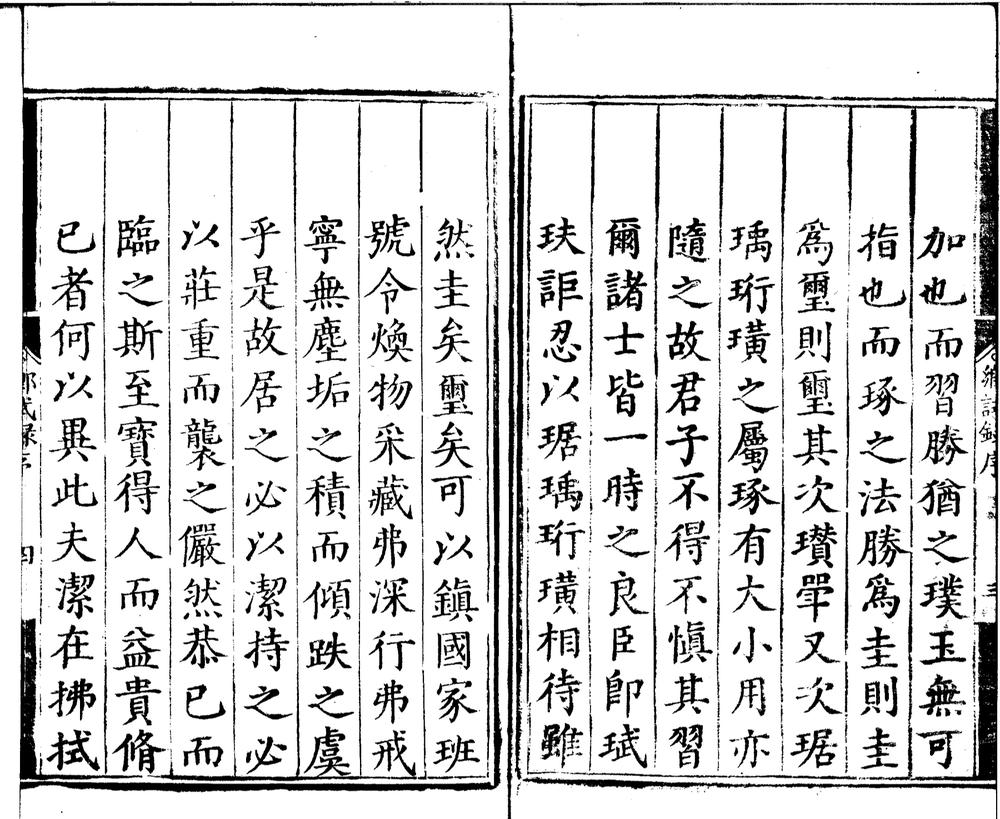 加也而習勝猶之璞玉無可
指也而琢之法勝爲圭則圭
爲璽則璽其次瓚斝又次琚
瑀珩璜之屬琢有大小用亦
隨之故君子不得不愼其習
爾諸士皆一時之良臣卽珷
玞詎忍以琚瑀珩璜相待雖
然圭矣璽矣可以鎭國家班
號令煥物采藏弗深行弗戒
寧無塵垢之積而傾跌之虞
乎是故居之必以潔持之必
以莊重而襲之儼然恭已而
臨之斯至寶得人而益貴脩
已者何以異此夫潔在拂拭